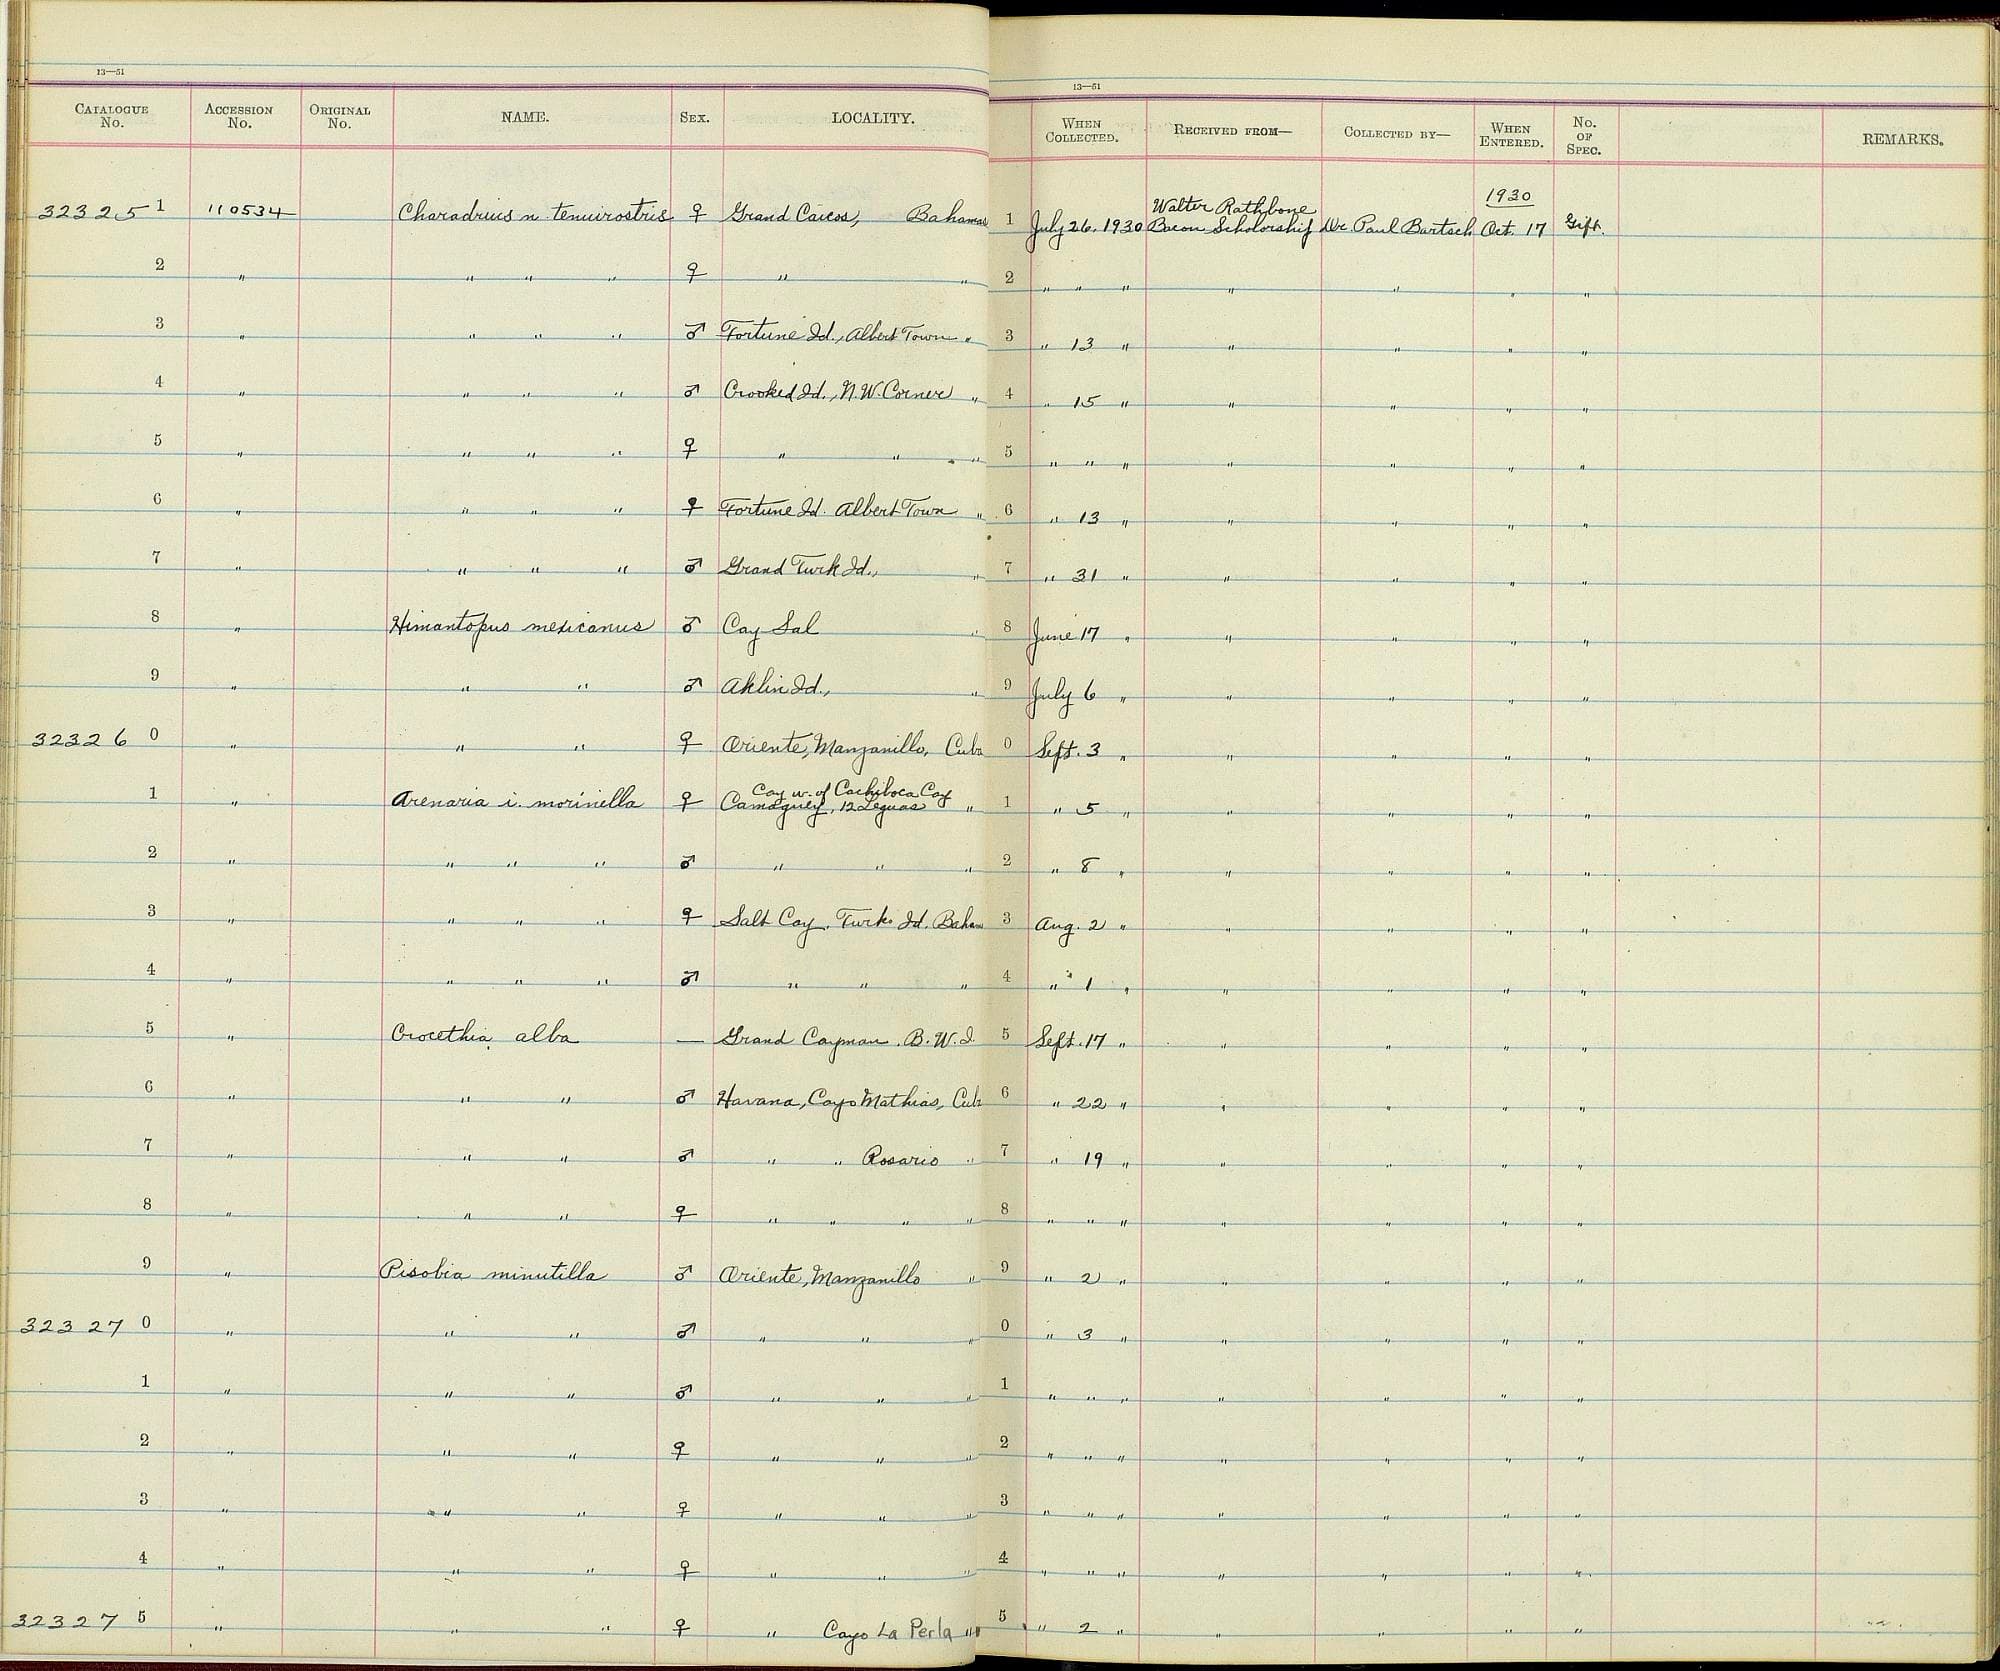 13—51
13—51
CATALOGUE No. ACCESSION No. ORIGINAL No. NAME. SEX. LOCALITY. WHEN COLLECTED. RECEIVED FROM— COLLECTED BY— WHEN ENTERED. No. OF SPEC. REMARKS.
32325 1 110534 Charadrius n. tenuirostris ♀ Grand Caicos, Bahamas 1 July 26, 1930 Walter Rathbone Bacon Scholarship Dr. Paul Bartsch 1930 Oct. 17 Gift.
2 " " " " ♀ " " 2 " " " " " " "
3 " " " " ♂ Fortune Id., Albert Town " 3 " 13 " " " " "
4 " " " " ♂ Crooked Id., N.W. Corner " 4 " 15 " " " " "
5 " " " " ♀ " " " 5 " " " " " " "
6 " " " " ♀ Fortune Id. Albert Town " 6 " 13 " " " " "
7 " " " " ♂ Grand Turk Id., " 7 " 31 " " " " "
8 " Himantopus mexicanus ♂ Cay Sal " 8 June 17 " " " " "
9 " " " ♂ Aklin Id., " 9 July 6 " " " " "
32326 0 " " " ♀ Oriente, Manzanillo, Cuba 0 Sept. 3 " " " " "
1 " Arenaria i. morinella ♀ Cay w. of Cachiboca Cay Camaguey, 12 Leguas " 1 " 5 " " " " "
2 " " " " ♂ " " " 2 " 8 " " " " "
3 " " " " ♀ Salt Cay, Turks Id. Baham 3 Aug. 2 " " " " "
4 " " " " ♂ " " " 4 " 1 " " " " "
5 " Crocethia alba — Grand Cayman. B.W.I. 5 Sept. 17 " " " " "
6 " " " ♂ Havana, Cayo Mathias, Cuba 6 " 22 " " " " "
7 " " " ♂ " " Rosario " 7 " 19 " " " " "
8 " " " ♀ " " " " 8 " " " " " " "
9 " Pisobia minutilla ♂ Oriente, Manzanillo " 9 " 2 " " " " "
32327 0 " " " ♂ " " " 0 " 3 " " " " "
1 " " " ♂ " " " 1 " " " " " " "
2 " " " ♀ " " " 2 " " " " " " "
3 " " " ♀ " " " 3 " " " " " " "
4 " " " ♀ " " " 4 " " " " " " "
32327 5 " " " ♀ " Cayo La Perla " 5 " 2 " " " " "